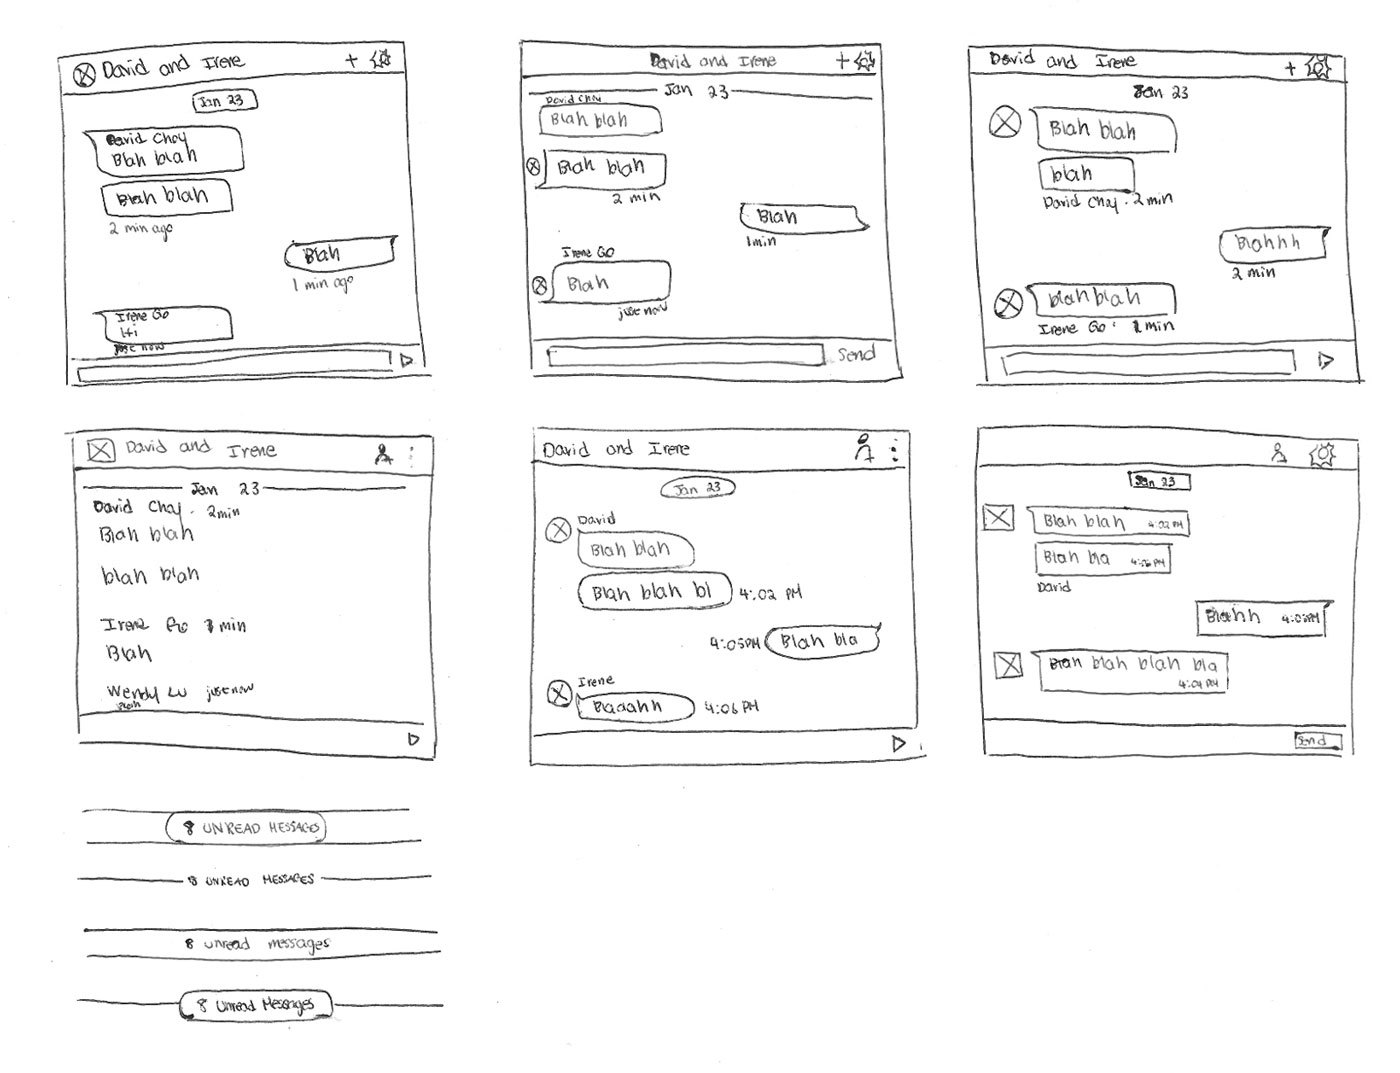 David and Irene +
Jan 23
David Choy
Blah blah
Blah blah
2 min ago
Blah
1 min ago
Irene Go
Hi
just now
David and Irene +
Jan 23
David Choy
Blah blah
Blah blah
2 min
Blah
1min
Irene Go
Blah
just now
Send
David and Irene +
Jan 23
Blah blah
blah
David Choy · 2 min
Blahhh
2 min
blah blah
Irene Go · 1 min
David and Irene
Jan 23
David Choy · 2min
Blah blah
blah blah
Irene Go 1 min
Blah
Wendy Lu just now
Blah
David and Irene
Jan 23
David
Blah blah
Blah blah bl 4:02 PM
4:05PM Blah bla
Irene
Blaaahh 4:06 PM
Jan 23
Blah blah 4:02 PM
Blah bla
David
Blahhh
Blah blah blah bla
4:04 PM
Send
8 UNREAD MESSAGES
8 UNREAD MESSAGES
8 unread messages
8 Unread Messages